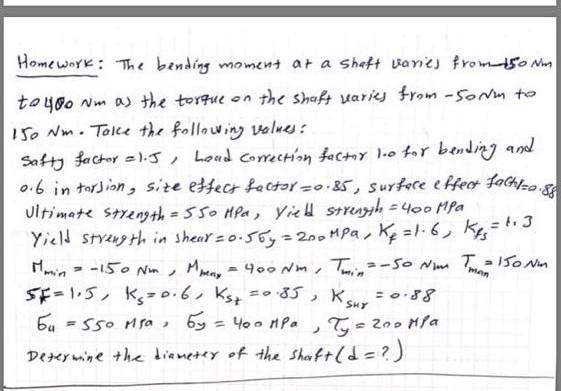 Homework: The bending moment at a shaft varies from -150 Nm
to 400 Nm as the torque on the shaft varies from -50Nm to
150 Nm. Take the following values:
Safty factor =1.5, Load correction factor 1.0 for bending and
0.6 in torsion, size effect factor =0.85, surface effect factor=0.88
Ultimate strength = 550 MPa, Yield strength = 400 MPa
Yield strength in shear = 0.5σy = 200 MPa, Kf =1.6, Kfs = 1.3
Mmin = -150 Nm, Mmax = 400 Nm, Tmin = -50 Nm Tman = 150 Nm
SF = 1.5, Ks = 0.6, Ksz = 0.85, Ksur = 0.88
σu = 550 MPa, σy = 400 MPa, Ty = 200 MPa
Determine the diameter of the shaft (d = ?)